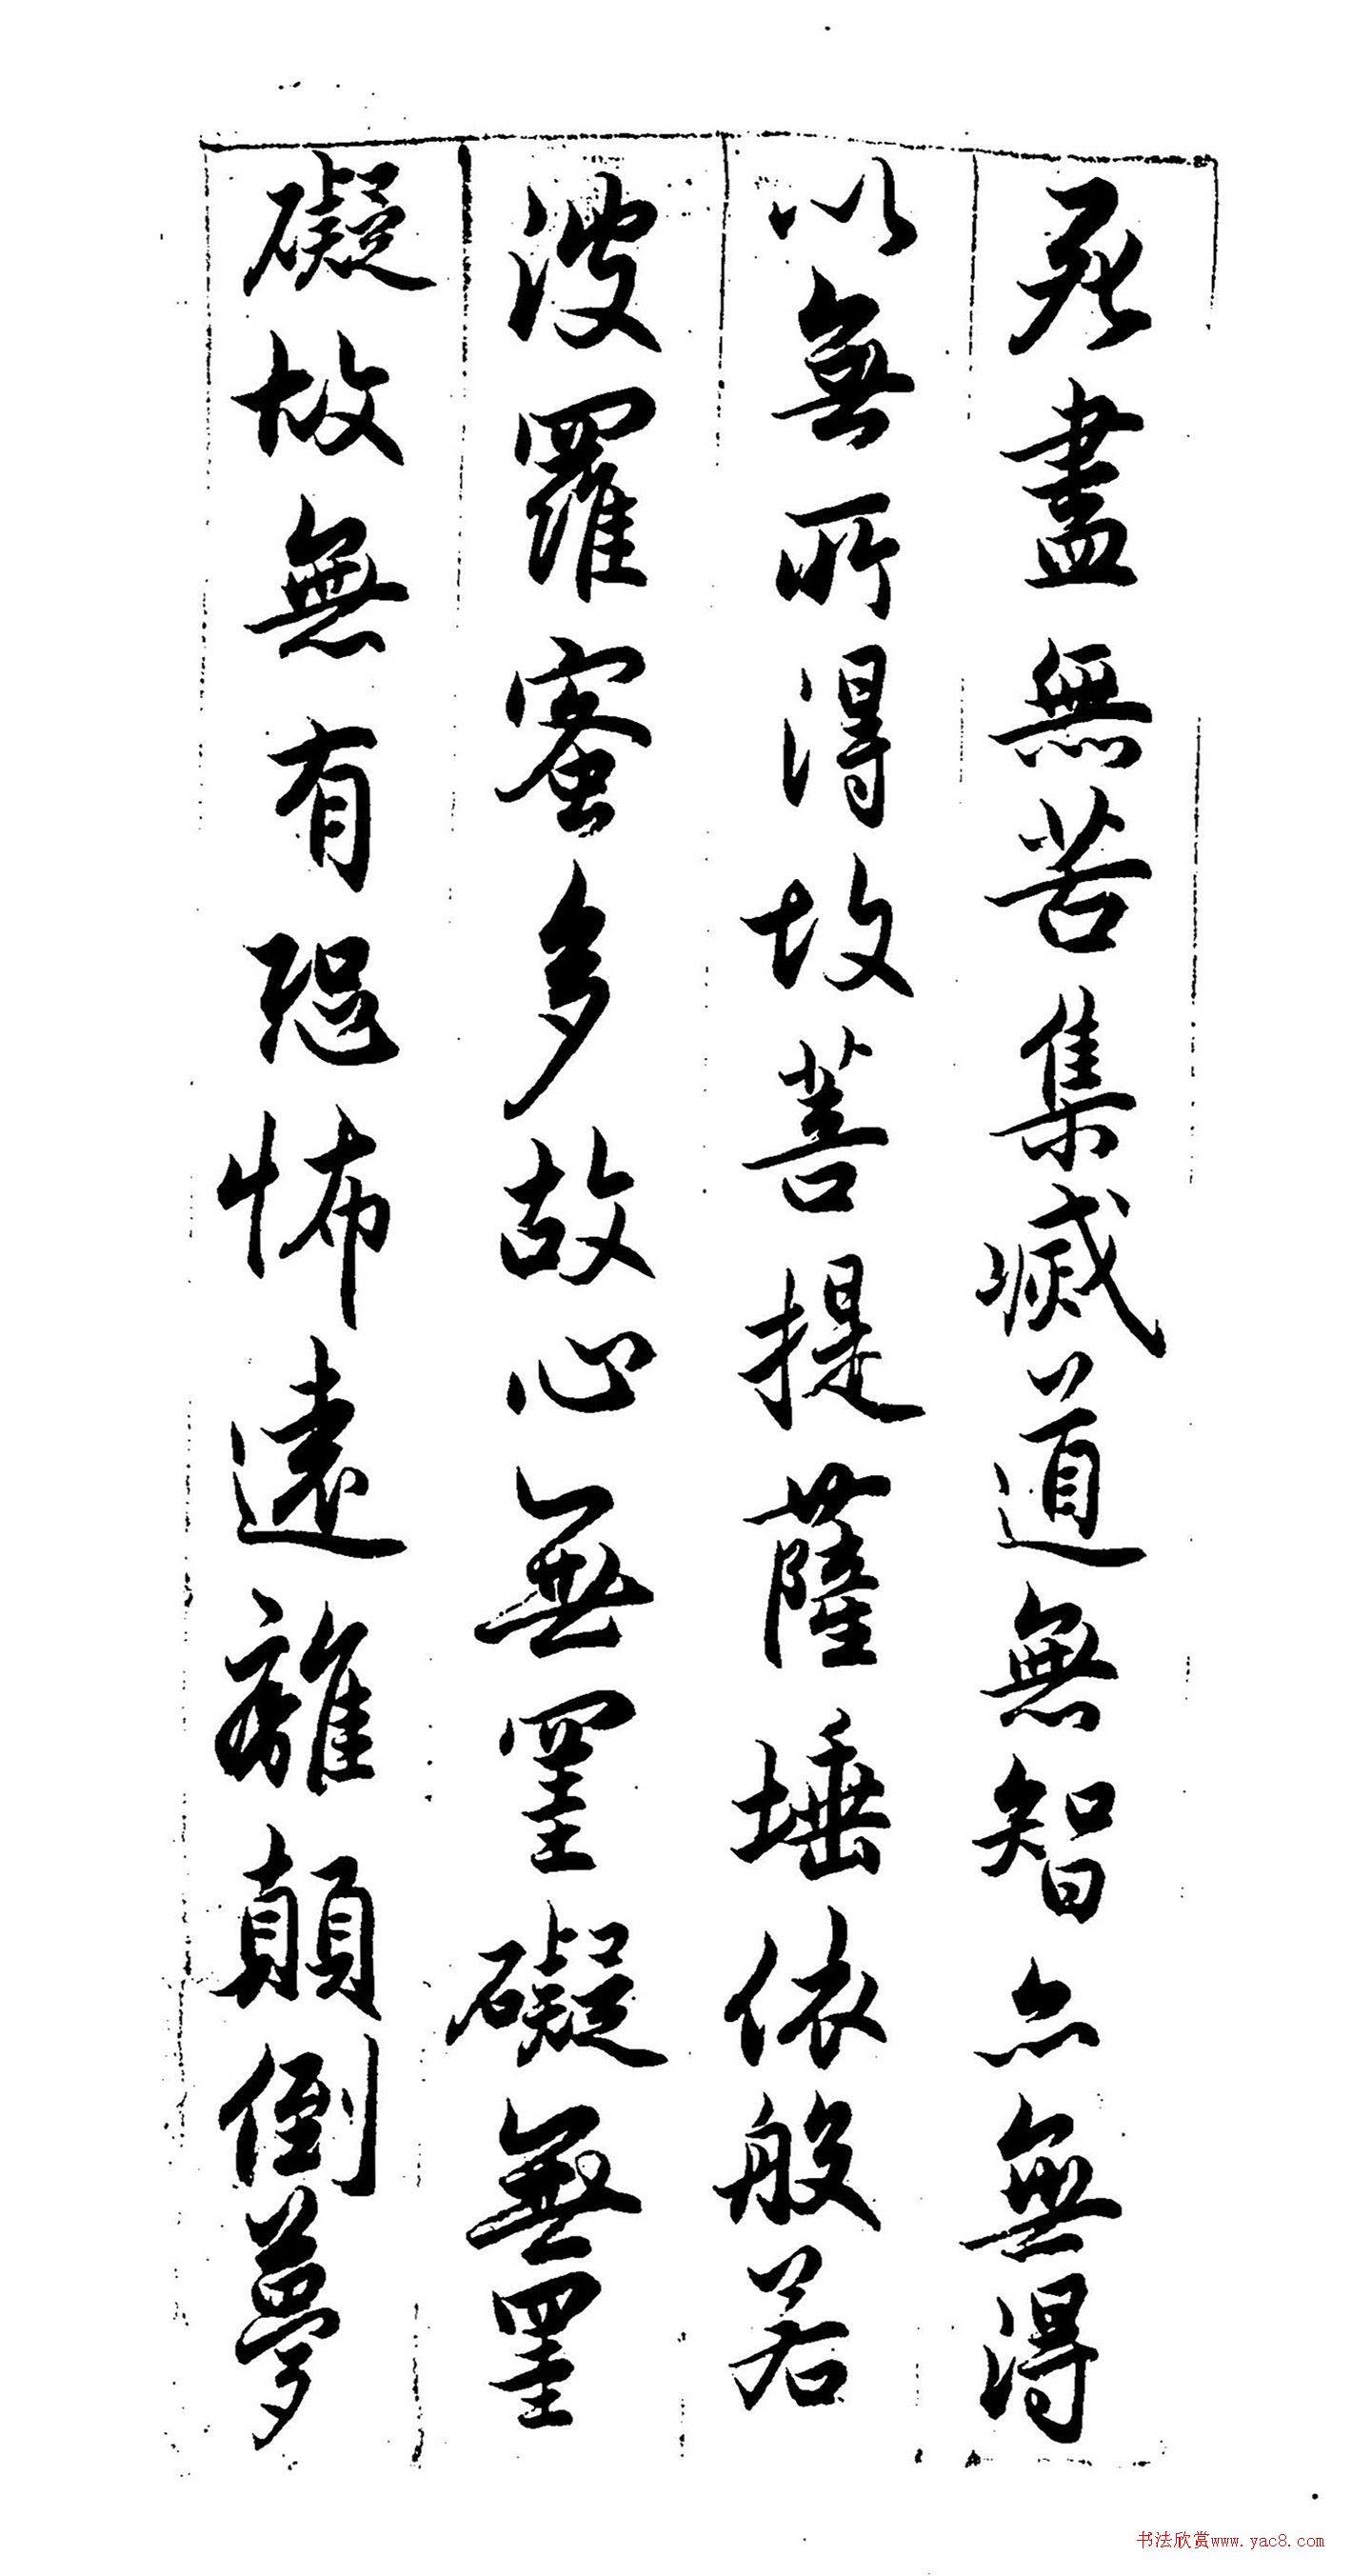 死盡無苦集滅道無智亦無得
以無所得故菩提薩埵依般若
波羅蜜多故心無罣礙無罣
礙故無有恐怖遠離顛倒夢
书法欣赏www.yac8.com